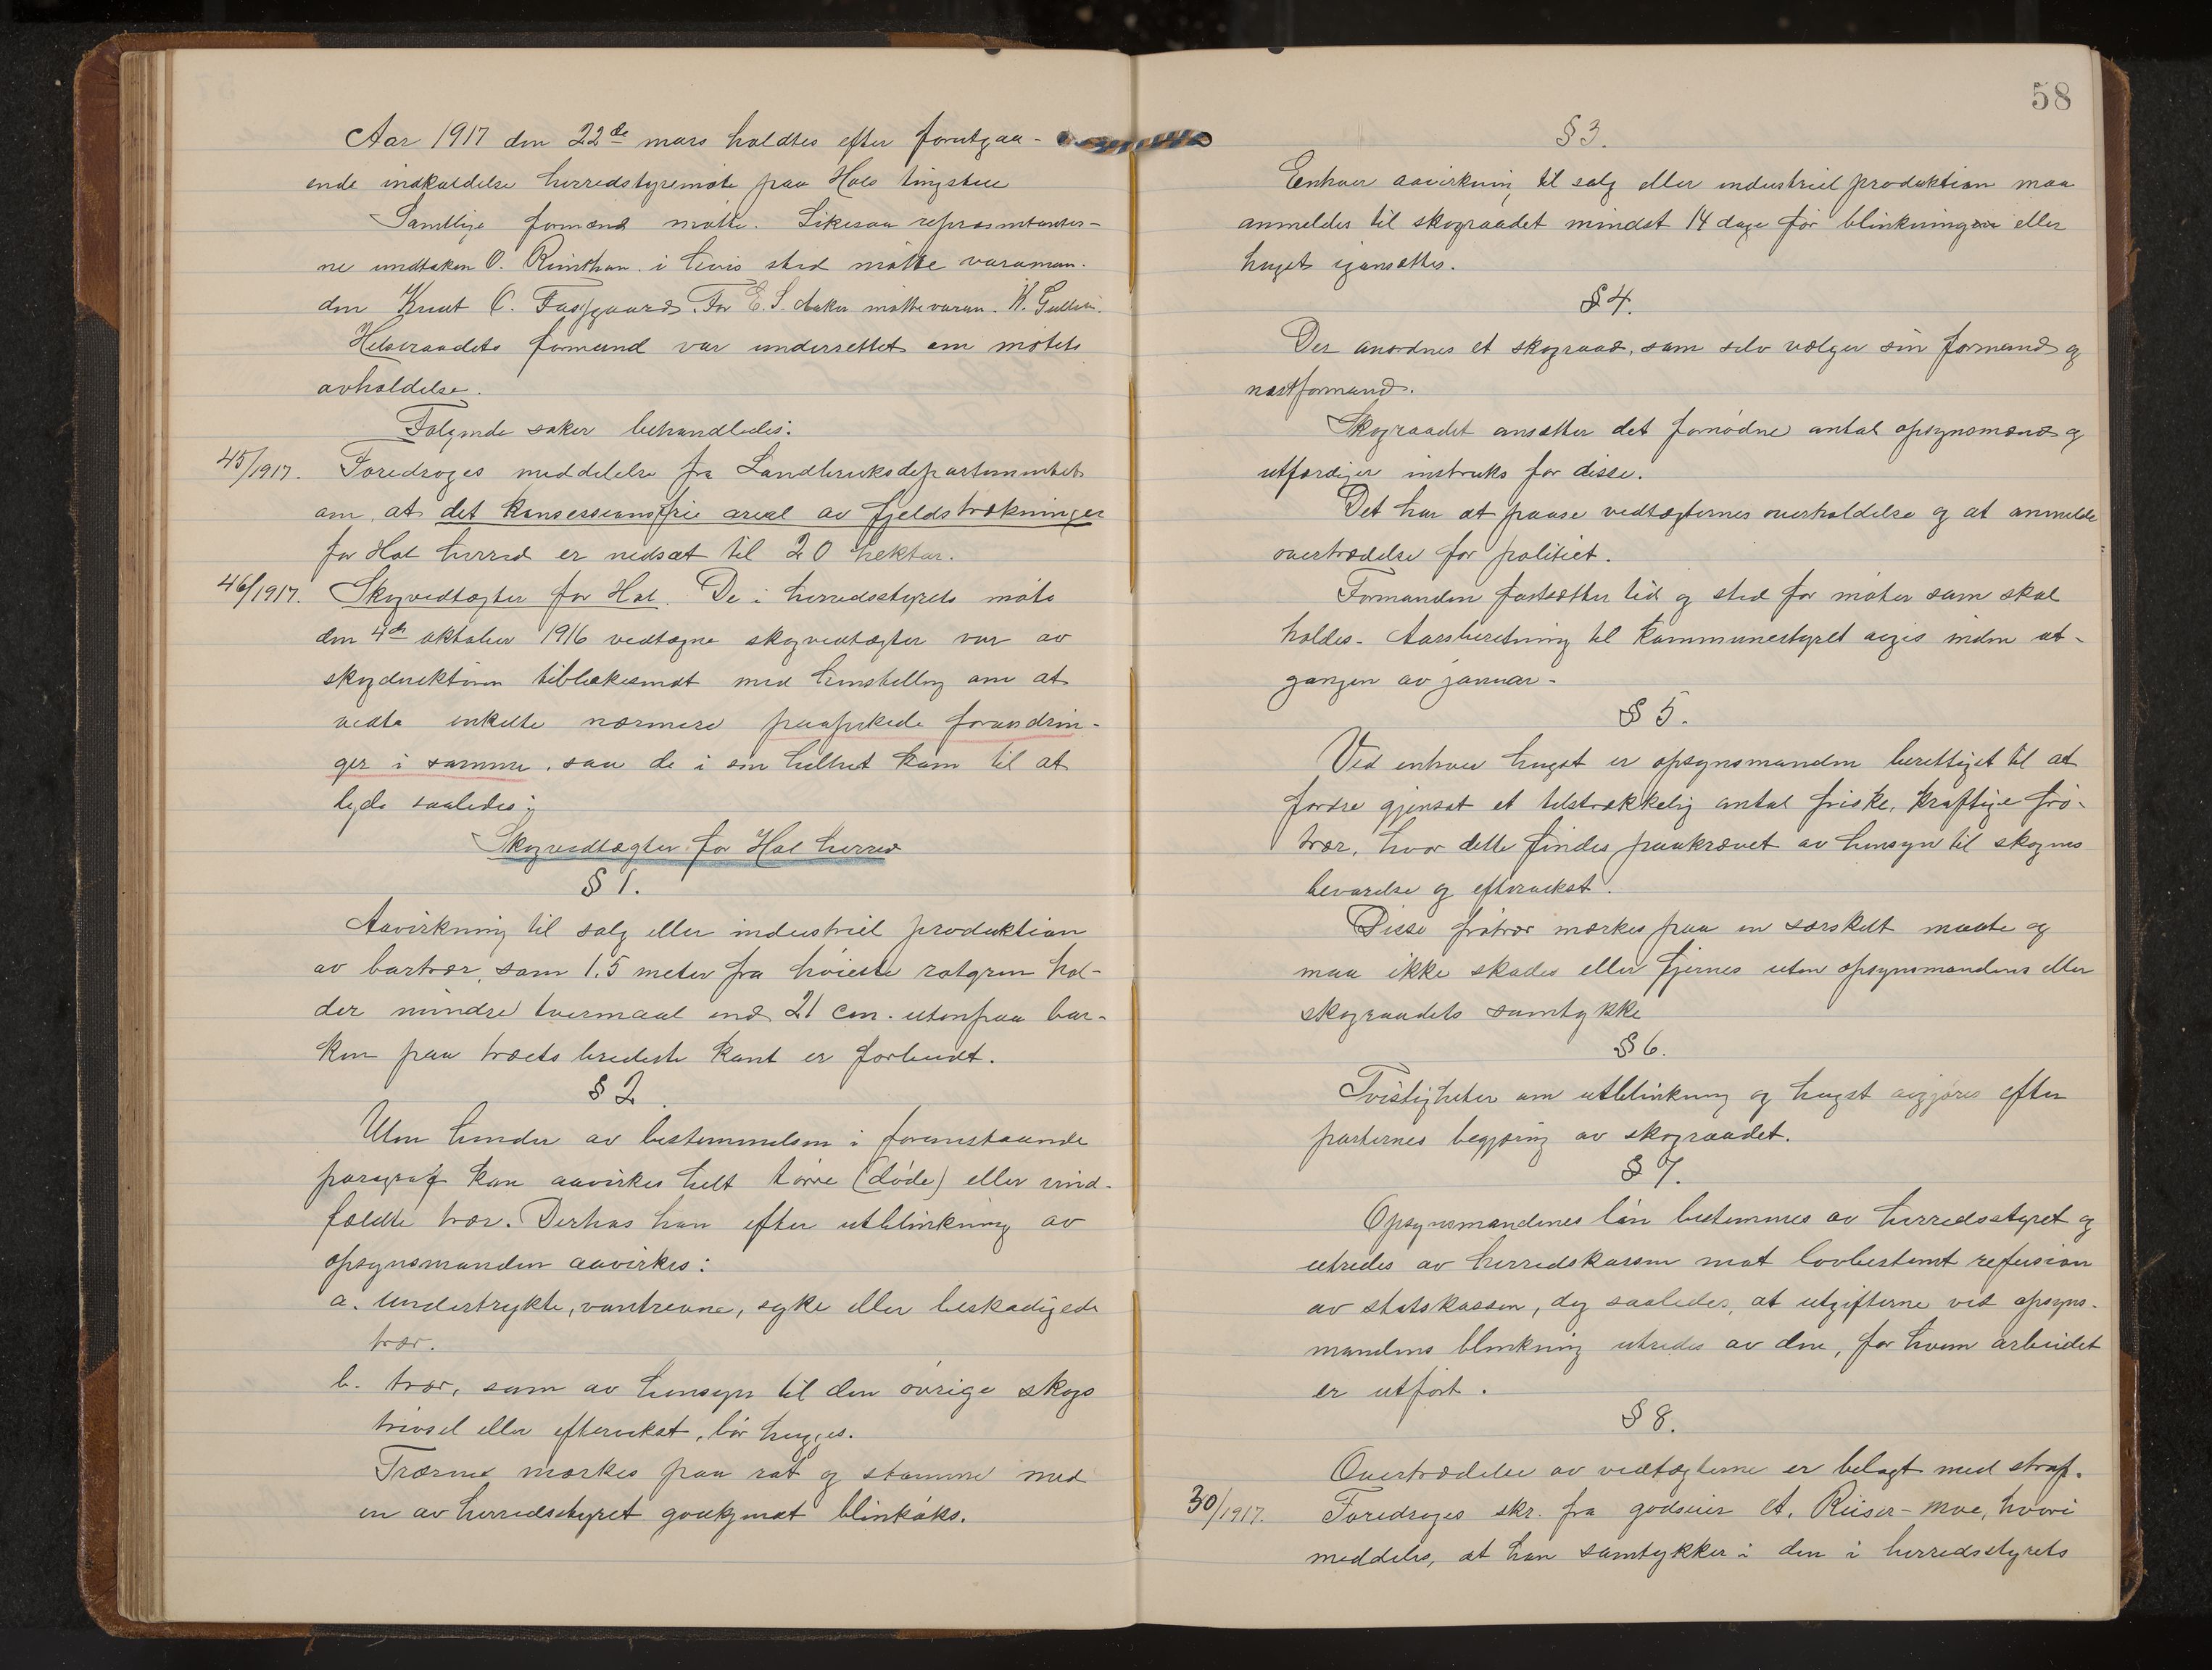 Aar 1917 den 22de mars holdtes efter forutgaa-
ende indkaldelse herredstyremøte paa Hols tingstue
Samtlige formænd møtte. Likesaa repræsentanter-
ne undtaken O. i hvis sted møtte varaman.
den Knut C. For E. S. Aaker møtte varam. K.
Helseraadets formand var underrettet om møtets
avholdelse.
Følgende saker behandledes:
45/1917. Foredroges meddelelse fra Landbruksdepartementet
om, at det konsessionsfrie areal av fjeldstrækninger
for Hol herred er nedsat til 20 hektar.
46/1917. Skogvedtægter for Hol. De i herredsstyrets møte
den 4de oktober 1916 vedtagne skogvedtægter var av
skogdirektøren tilbakesendt med henstilling om at
vedta enkelte nærmere paapekede forandrin-
ger i samme, saa de i sin helhet kom til at
lyde saaledes:
Skogvedtægter for Hol herred
§ 1.
Aavirkning til salg eller industriel produktion
av bartrær, som 1.5 meter fra høieste rotgren hol-
der mindre tvermaal end 21 cm. utenpaa bar-
ken paa træets bredeste kant er forbudt.
§ 2.
Uten hinder av bestemmelsen i foranstaaende
paragraf kan aavirkes helt tørre (døde) eller vind-
fældte trær. Derhos kan efter utblinkning av
opsynsmanden aavirkes:
a. undertrykte, vantrevne, syke eller beskadigede
trær.
b. trær, som av hensyn til den øvrige skogs
trivsel eller eftervekst, bør hugges.
Trærne merkes paa rot og stamme med
en av herredsstyret godkjendt blinkøks.
58
§ 3.
Enhver aavirkning til salg eller industriel produktion maa
anmeldes til skograadet mindst 14 dage før blinkningen eller
hugst igansættes.
§ 4.
Der anordnes et skograad, som selv vælger sin formand og
næstformand.
Skograadet ansætter det fornødne antal opsynsmænd og
utfærdiger instruks for disse.
Det har at paase vedtægternes overholdelse og at anmelde
overtrædelse for politiet.
Formanden fastsætter tid og sted for møter som skal
holdes. Aarsberetning til kommunestyret avgis inden ut-
gangen av januar.
§ 5.
Ved enhver hugst er opsynsmanden berettiget til at
fordre gjensat et tilstrækkelig antal friske, kraftige frø-
trær, hvor dette findes paakrævet av hensyn til skogens
bevarelse og eftervekst.
Disse frøtrær merkes paa en særskilt maate og
maa ikke skades eller fjernes uten opsynsmandens eller
skograadets samtykke
§ 6.
Tvistigheter om utblinkning og hugst avgjøres efter
parternes begjæring av skograadet.
§ 7.
Opsynsmandenes løn bestemmes av herredsstyret og
utredes av herredskassen mot lovbestemt refusion
av statskassen, dog saaledes, at utgifterne ved opsyns-
mandens blinkning utredes av den, for hvem arbeidet
er utført.
§ 8.
Overtrædelse av vedtægterne er belagt med straf.
30/1917. Foredroges skr. fra godseier A. Rüser-Moe, hvori
meddeles, at han samtykker i den i herredsstyrets